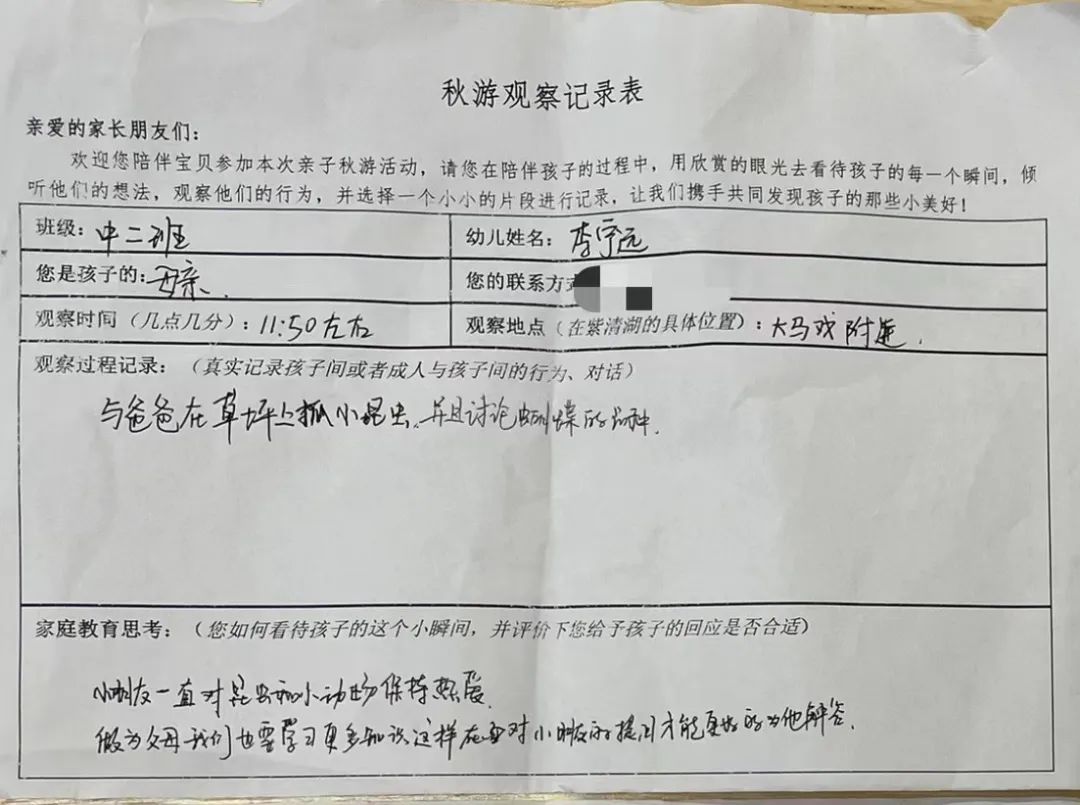 秋游观察记录表
亲爱的家长朋友们：
欢迎您陪伴宝贝参加本次亲子秋游活动，请您在陪伴孩子的过程中，用欣赏的眼光去看待孩子的每一个瞬间，倾
听他们的想法，观察他们的行为，并选择一个小小的片段进行记录，让我们携手共同发现孩子的那些小美好！
班级：中二班
幼儿姓名：李宇远
您是孩子的：母亲.
您的联系方式
观察时间（几点几分）：11:50左右
观察地点（在紫清湖的具体位置）：大马戏附近.
观察过程记录：（真实记录孩子间或者成人与孩子间的行为、对话）
与爸爸在草坪上抓小昆虫，并且讨论蝴蝶的品种.
家庭教育思考：（您如何看待孩子的这个小瞬间，并评价下您给予孩子的回应是否合适）
小朋友一直对昆虫和小动物保持热爱.
做为父母我们也要学习更多知识这样在面对小朋友的提问才能更好的为他解答.